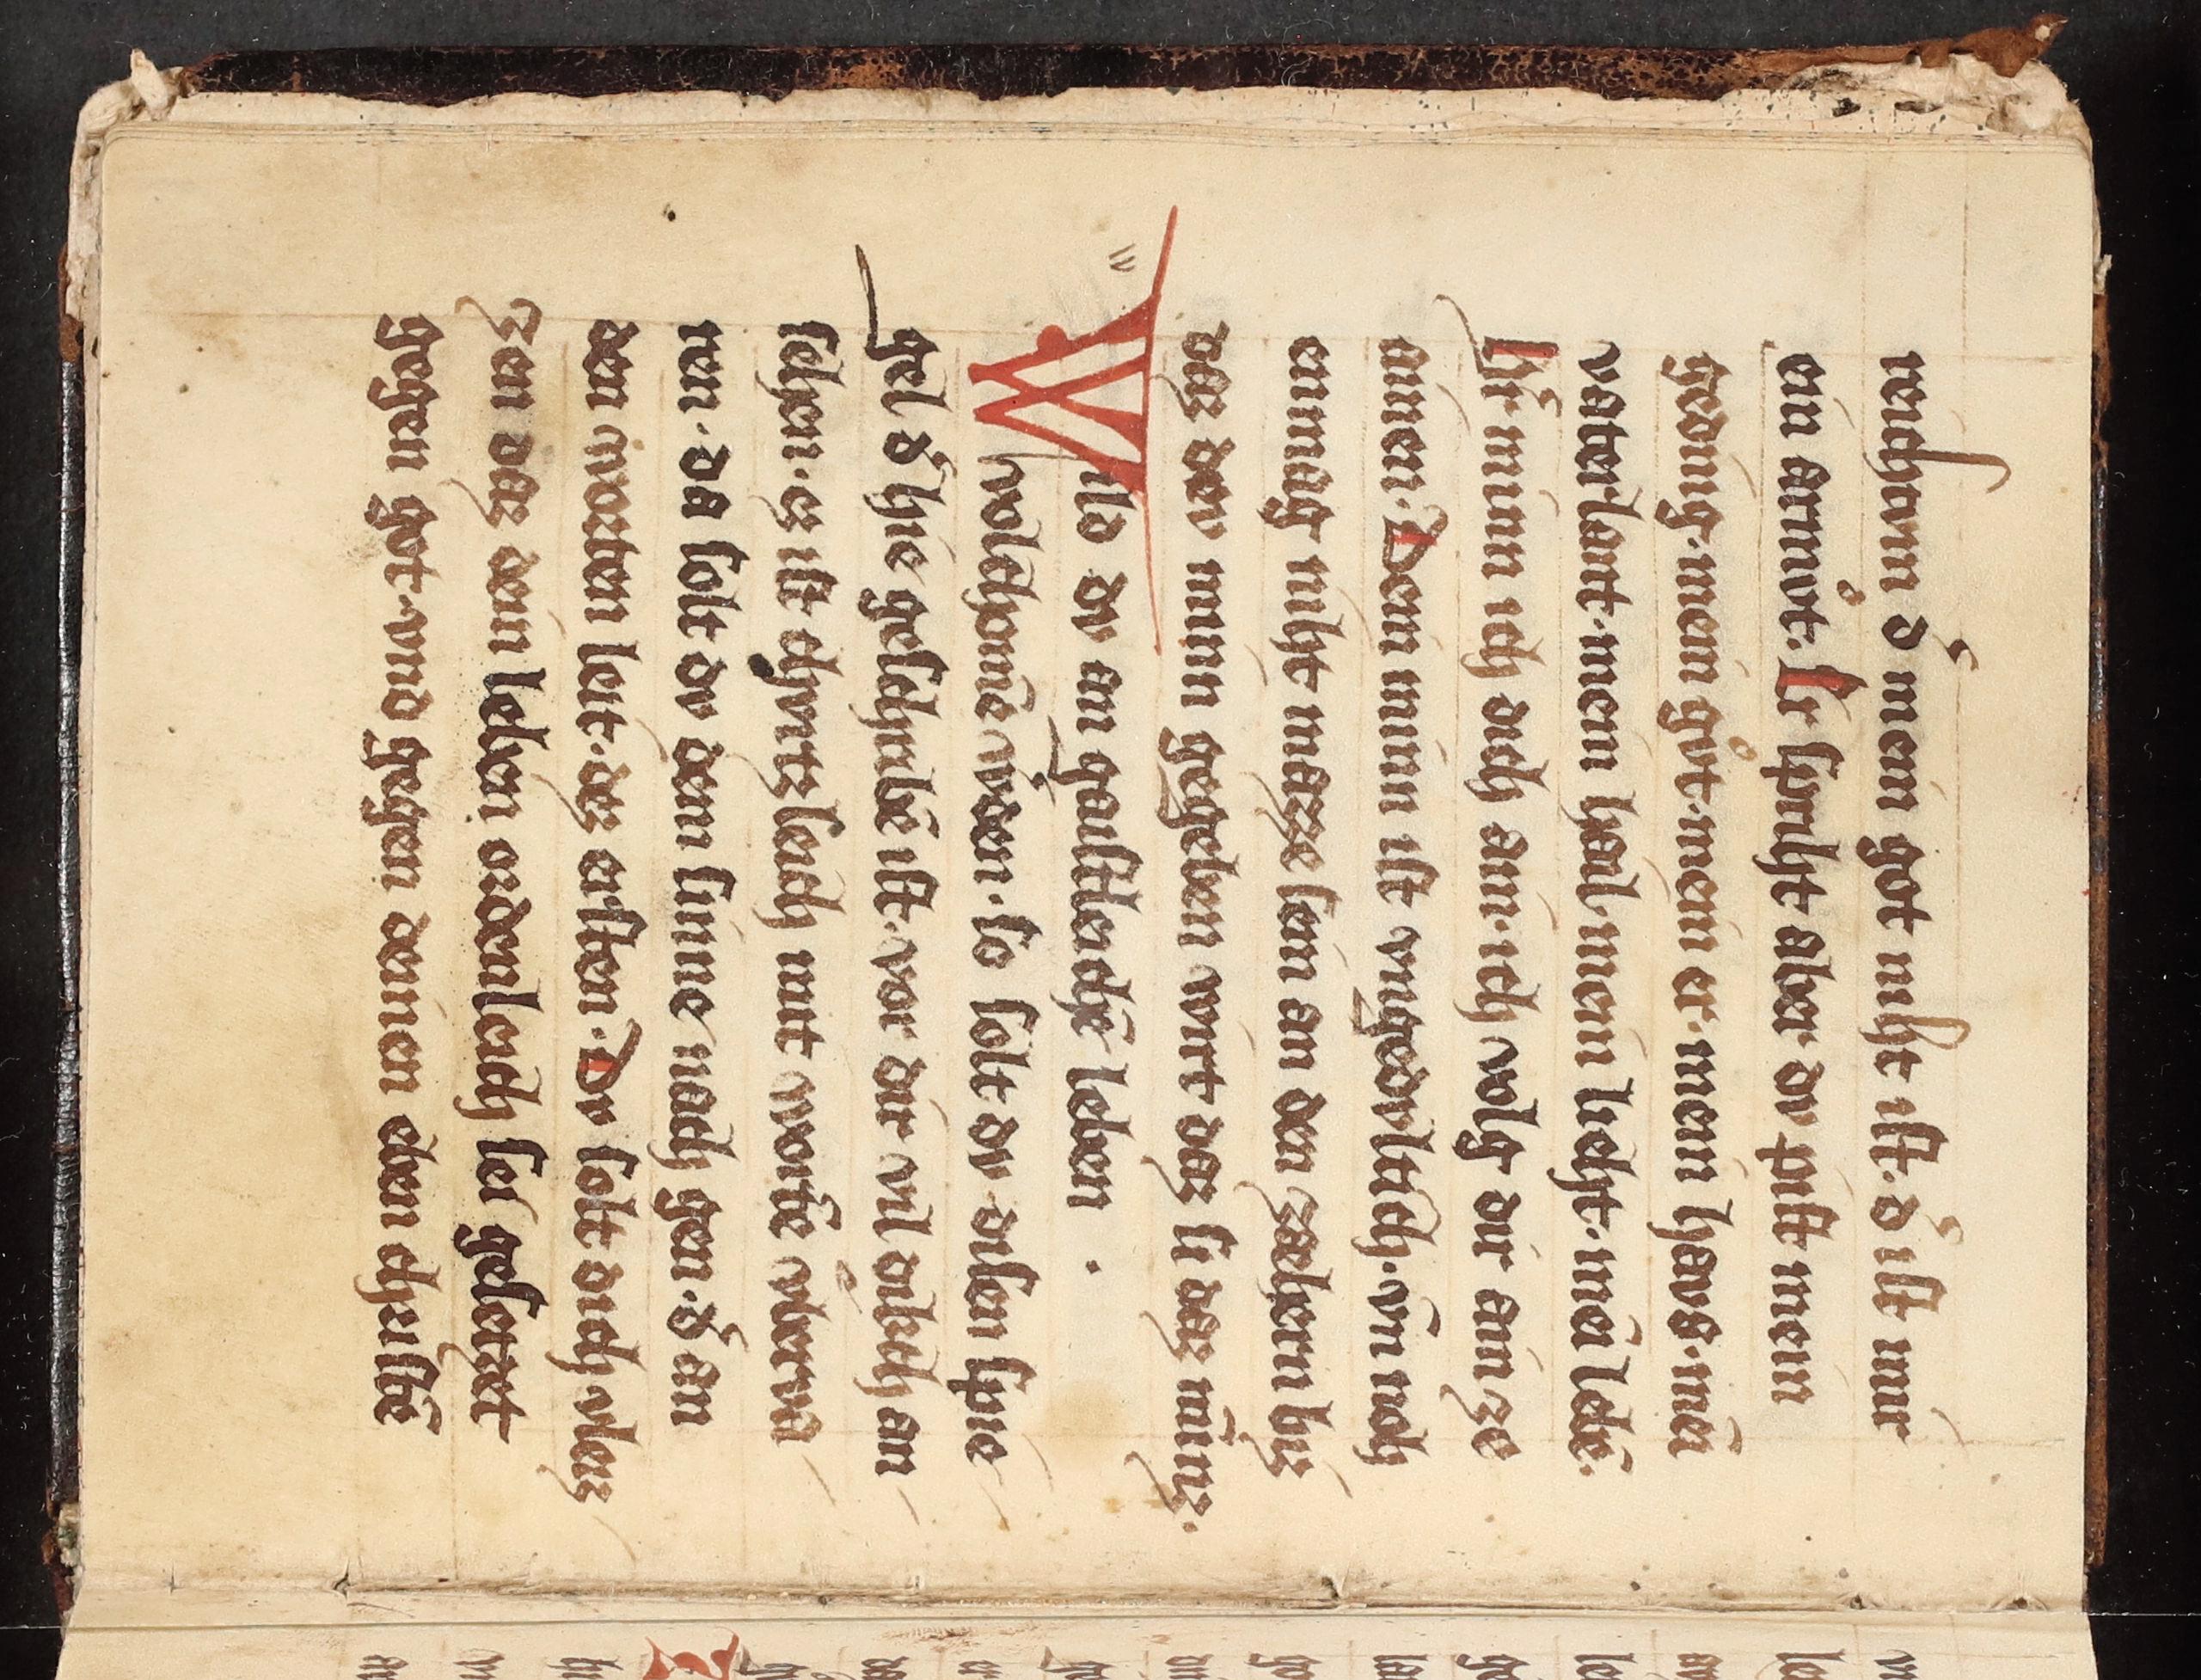 reichtum d̉ mein got niht ist. d̉ ist mir
ein armvͦt. Er spriht aber dv pist mein
geding. mein gvͦt. mein er. mein havs. mēi
vaterlant. mein hail. mein lieht. mēi lebē.
Hr̄. minn ich dich ain. ich volg dir ain ze
ainen. Dein minn ist vngedvltich. vn̄ noch
enmag niht mazze sein an den zæhern biz
daz dev minn gegeben wirt daz si daz minn̄.
Wild dv an gaistleichē leben
volchomē wͤden. so solt dv disen spie
gel d̉ hie geschribē ist. vor dir vil dikch an
sehen. er ist chvrtzleich mit wortē vberva
ren. da solt dv dein sinne nach gen. d̉ an
den worten leit. dez ersten. Dv solt dich vleiz
zen daz dein leben ordenleich sei gesetzet
gegen got. vnd gegen deinen eben christē